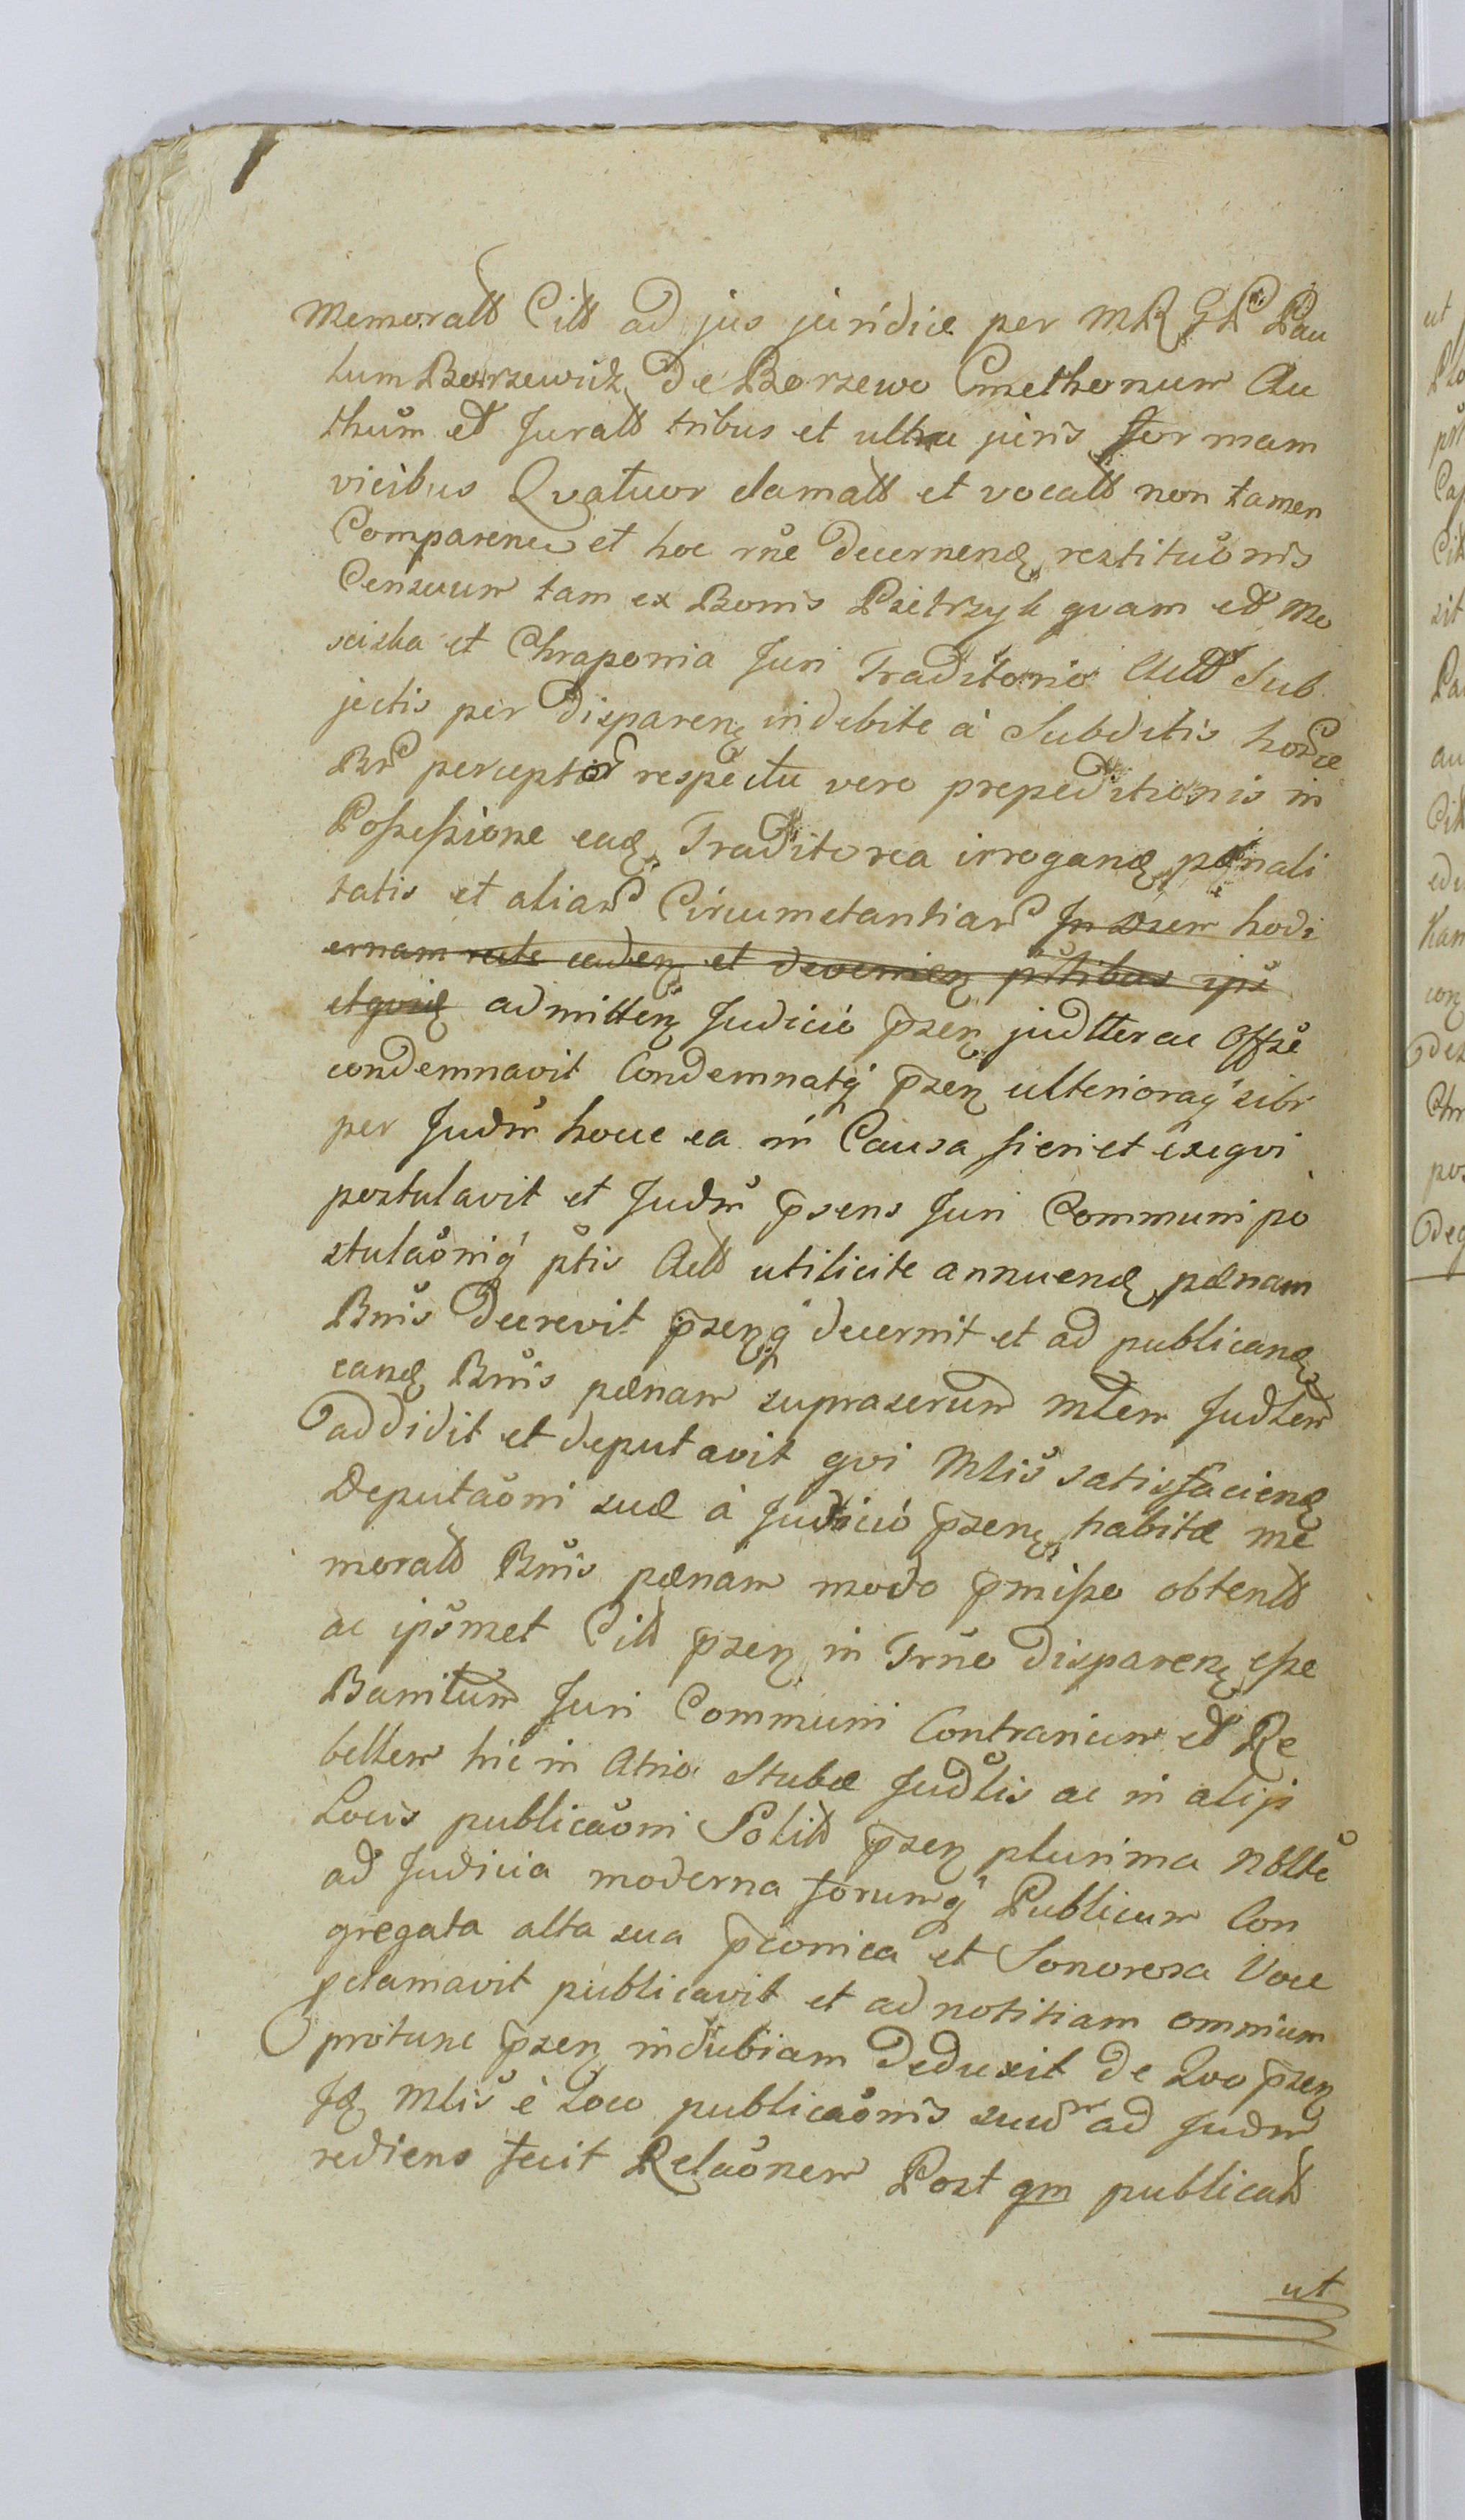 Memoratt Citt ad jus juridice per MR GR Pau
lum Borzewicz de Borzewo Cmethonum Au
thum et Juratt tribus et ultra juris formam
vicibus Qvatuor clamatt et vocatt non tamen
Comparenu et hoc rne decernend restituonis
Censuum tam ex Bonis Psetrzyk qvam et Mo
sciska et Chraponia Juri Traditorio Actt Sub
jectis per disparen indebite à Subditis horce
Br perceptor respectu vero prepeditionis in
Possessione ead Traditorea irrogand pænali
tatis et aliar Circumstantiar In Diem hodi
ernam rite caden et devenien ptibus ips
et qvid admitten Judicio psen judtter ac Offse
condemnavit Condemnatq psen ulterioraq sibi
per Judm hocce ea in Causa fieri et exeqvi
postulavit et Judm psens Juri Communi po
stulaoniq ptis Actt utilicite annuend pænam
Bnis decrevit psenq decernit et ad publicand
eand Bnis pænam suprascrum Mtem Judtem
addidit et deputavit qvi Mlis satisfaciend
Deputaoni suæ à Judicio psen habitæ me
moratt Bnis pænam modo pmisso obtentt
ac ipsmet Citt psen in Trno disparen esse
Banitum Juri Communi Contrarium et Re
bellem hic in Atrio Stubæ Judlis ac in alijs
Locis publicaoni Solitt psen plurima Nbltte
ad Judicia moderna forumq Publicum Con
gregata alta sua pconica et Sonorosa Voce
pclamavit publicavit et ad notitiam omnium
protunc psen indubiam deduxit de Qvo psen
Id Mlis è Loco publicaonis suæ ad Judm
rediens fecit Relaonem Post qm publicatt
ut